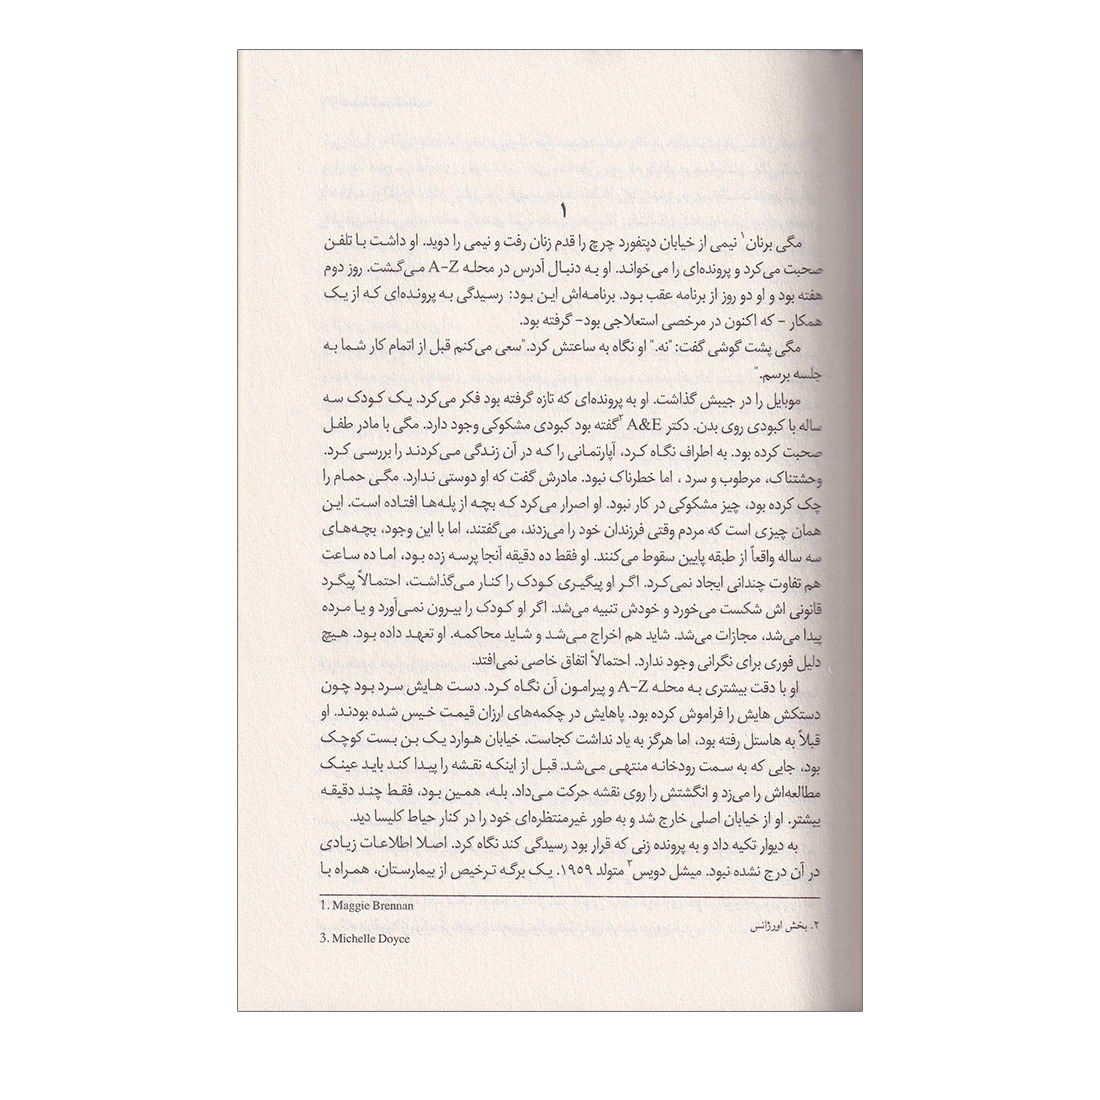 ۱
مگی برنان۱ نیمی از خیابان دپتفورد چرچ را قدم زنان رفت و نیمی را دوید. او داشت با تلفن
صحبت می‌کرد و پرونده‌ای را می‌خواند. او به دنبال آدرس در محله A–Z می‌گشت. روز دوم
هفته بود و او دو روز از برنامه عقب بود. برنامه‌اش این بود: رسیدگی به پرونده‌ای که از یک
همکار – که اکنون در مرخصی استعلاجی بود– گرفته بود.
مگی پشت گوشی گفت: "نه." او نگاه به ساعتش کرد."سعی می‌کنم قبل از اتمام کار شما به
جلسه برسم."
موبایل را در جیبش گذاشت. او به پرونده‌ای که تازه گرفته بود فکر می‌کرد. یک کودک سه
ساله با کبودی روی بدن. دکتر A&E ۲گفته بود کبودی مشکوکی وجود دارد. مگی با مادر طفل
صحبت کرده بود. به اطراف نگاه کرد، آپارتمانی را که در آن زندگی می‌کردند را بررسی کرد.
وحشتناک، مرطوب و سرد ، اما خطرناک نبود. مادرش گفت که او دوستی ندارد. مگی حمام را
چک کرده بود، چیز مشکوکی در کار نبود. او اصرار می‌کرد که بچه از پله‌ها افتاده است. این
همان چیزی است که مردم وقتی فرزندان خود را می‌زدند، می‌گفتند، اما با این وجود، بچه‌های
سه ساله واقعاً از طبقه پایین سقوط می‌کنند. او فقط ده دقیقه آنجا پرسه زده بود، اما ده ساعت
هم تفاوت چندانی ایجاد نمی‌کرد. اگر او پیگیری کودک را کنار می‌گذاشت، احتمالاً پیگرد
قانونی اش شکست می‌خورد و خودش تنبیه می‌شد. اگر او کودک را بیرون نمی‌آورد و یا مرده
پیدا می‌شد، مجازات می‌شد. شاید هم اخراج می‌شد و شاید محاکمه. او تعهد داده بود. هیچ
دلیل فوری برای نگرانی وجود ندارد. احتمالاً اتفاق خاصی نمی‌افتد.
او با دقت بیشتری به محله A–Z و پیرامون آن نگاه کرد. دست هایش سرد بود چون
دستکش هایش را فراموش کرده بود. پاهایش در چکمه‌های ارزان قیمت خیس شده بودند. او
قبلاً به هاستل رفته بود، اما هرگز به یاد نداشت کجاست. خیابان هوارد یک بن بست کوچک
بود، جایی که به سمت رودخانه منتهی می‌شد. قبل از اینکه نقشه را پیدا کند باید عینک
مطالعه‌اش را می‌زد و انگشتش را روی نقشه حرکت می‌داد. بله، همین بود، فقط چند دقیقه
بیشتر. او از خیابان اصلی خارج شد و به طور غیرمنتظره‌ای خود را در کنار حیاط کلیسا دید.
به دیوار تکیه داد و به پرونده زنی که قرار بود رسیدگی کند نگاه کرد. اصلا اطلاعات زیادی
در آن درج نشده نبود. میشل دویس۳ متولد ۱۹۵۹. یک برگه ترخیص از بیمارستان، همراه با
1. Maggie Brennan
۲. بخش اورژانس
3. Michelle Doyce